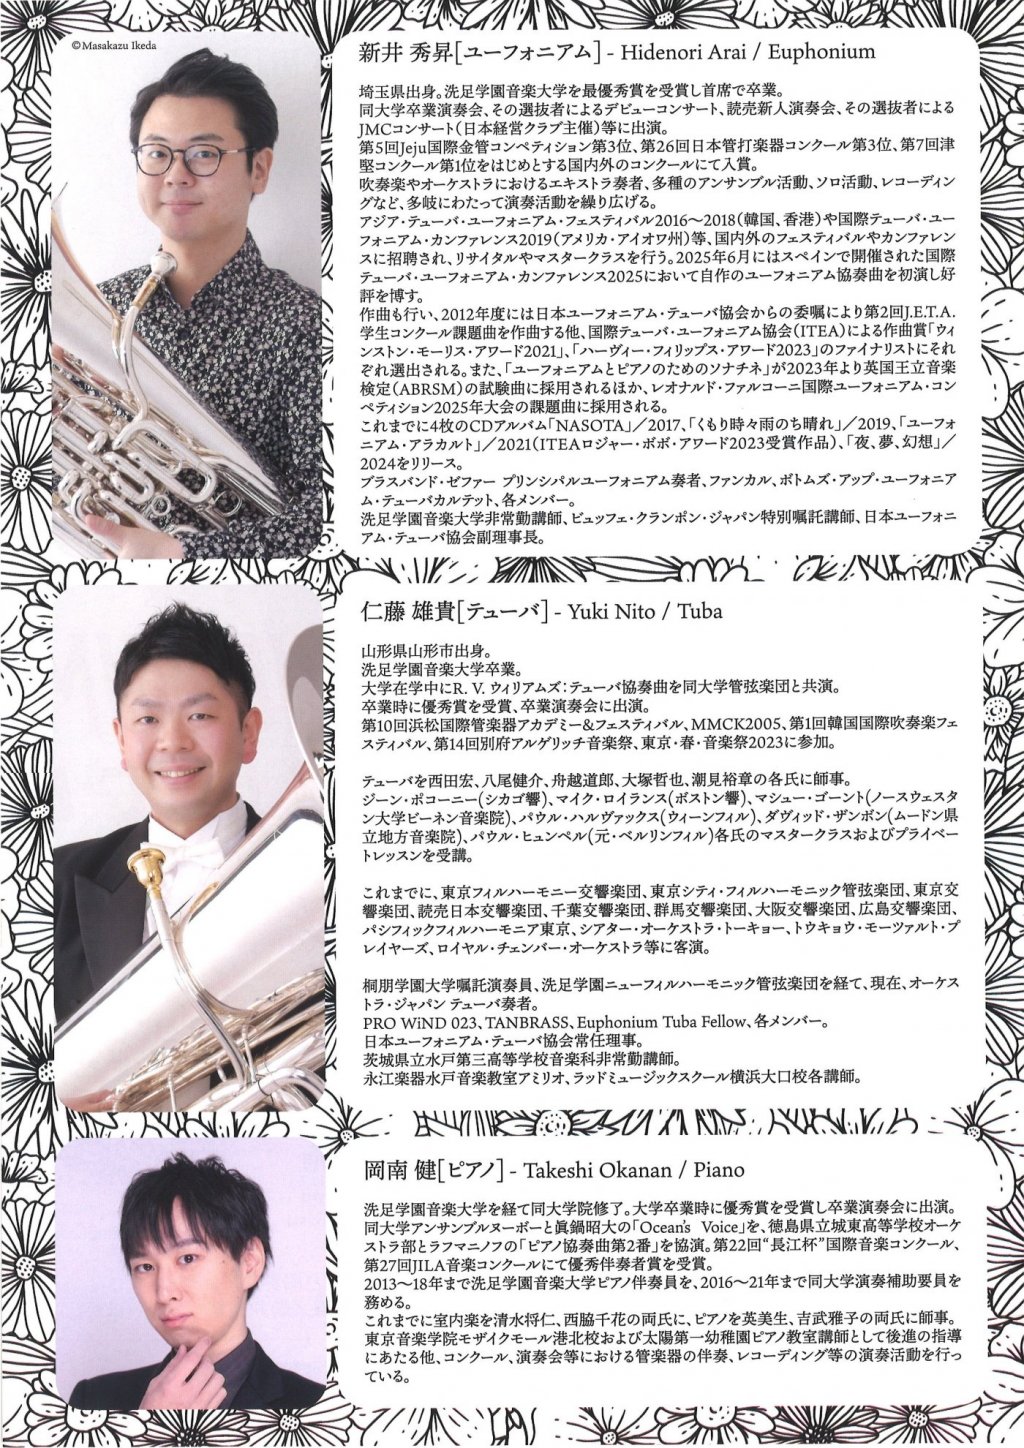 ©Masakazu Ikeda
新井 秀昇[ユーフォニアム] - Hidenori Arai / Euphonium
埼玉県出身。洗足学園音楽大学を最優秀賞を受賞し首席で卒業。
同大学卒業演奏会、その選抜者によるデビューコンサート、読売新人演奏会、その選抜者による
JMCコンサート(日本経営クラブ主催)等に出演。
第5回Jeju国際金管コンペティション第3位、第26回日本管打楽器コンクール第3位、第7回津
堅コンクール第1位をはじめとする国内外のコンクールにて入賞。
吹奏楽やオーケストラにおけるエキストラ奏者、多種のアンサンブル活動、ソロ活動、レコーディン
グなど、多岐にわたって演奏活動を繰り広げる。
アジア・テューバ・ユーフォニアム・フェスティバル2016〜2018(韓国、香港)や国際テューバ・ユー
フォニアム・カンファレンス2019(アメリカ・アイオワ州)等、国内外のフェスティバルやカンファレン
スに招聘され、リサイタルやマスタークラスを行う。2025年6月にはスペインで開催された国際
テューバ・ユーフォニアム・カンファレンス2025において自作のユーフォニアム協奏曲を初演し好
評を博す。
作曲も行い、2012年度には日本ユーフォニアム・テューバ協会からの委嘱により第2回J.E.T.A.
学生コンクール課題曲を作曲する他、国際テューバ・ユーフォニアム協会(ITEA)による作曲賞「ウィ
ンストン・モーリス・アワード2021」、「ハーヴィー・フィリップス・アワード2023」のファイナリストにそれ
ぞれ選出される。また、「ユーフォニアムとピアノのためのソナチネ」が2023年より英国王立音楽
検定(ABRSM)の試験曲に採用されるほか、レオナルド・ファルコーニ国際ユーフォニアム・コン
ペティション2025年大会の課題曲に採用される。
これまでに4枚のCDアルバム「NASOTA」／2017、「くもり時々雨のち晴れ」／2019、「ユーフォ
ニアム・アラカルト」／2021(ITEAロジャー・ボボ・アワード2023受賞作品)、「夜、夢、幻想」／
2024をリリース。
ブラスバンド・ゼファー プリンシパルユーフォニアム奏者、ファンカル、ボトムズ・アップ・ユーフォニア
ム・テューバカルテット、各メンバー。
洗足学園音楽大学非常勤講師、ビュッフェ・クランポン・ジャパン特別嘱託講師、日本ユーフォニ
アム・テューバ協会副理事長。
仁藤 雄貴[テューバ] - Yuki Nito / Tuba
山形県山形市出身。
洗足学園音楽大学卒業。
大学在学中にR. V. ウィリアムズ：テューバ協奏曲を同大学管弦楽団と共演。
卒業時に優秀賞を受賞、卒業演奏会に出演。
第10回浜松国際管楽器アカデミー&フェスティバル、MMCK2005、第1回韓国国際吹奏楽フェ
スティバル、第14回別府アルゲリッチ音楽祭、東京・春・音楽祭2023に参加。
テューバを西田宏、八尾健介、舟越道郎、大塚哲也、潮見裕章の各氏に師事。
ジーン・ポコーニー(シカゴ響)、マイク・ロイランス(ボストン響)、マシュー・ゴーント(ノースウェスタ
ン大学ビーネン音楽院)、パウル・ハルヴァックス(ウィーンフィル)、ダヴィッド・ザンボン(ムードン県
立地方音楽院)、パウル・ヒュンペル(元・ベルリンフィル)各氏のマスタークラスおよびプライベー
トレッスンを受講。
これまでに、東京フィルハーモニー交響楽団、東京シティ・フィルハーモニック管弦楽団、東京交
響楽団、読売日本交響楽団、千葉交響楽団、群馬交響楽団、大阪交響楽団、広島交響楽団、
パシフィックフィルハーモニア東京、シアター・オーケストラ・トーキョー、トウキョウ・モーツァルト・プ
レイヤーズ、ロイヤル・チェンバー・オーケストラ等に客演。
桐朋学園大学嘱託演奏員、洗足学園ニューフィルハーモニック管弦楽団を経て、現在、オーケス
トラ・ジャパン テューバ奏者。
PRO WiND 023、TANBRASS、Euphonium Tuba Fellow、各メンバー。
日本ユーフォニアム・テューバ協会常任理事。
茨城県立水戸第三高等学校音楽科非常勤講師。
永江楽器水戸音楽教室アミリオ、ラッドミュージックスクール横浜大口校各講師。
岡南 健[ピアノ] - Takeshi Okanan / Piano
洗足学園音楽大学を経て同大学院修了。大学卒業時に優秀賞を受賞し卒業演奏会に出演。
同大学アンサンブルヌーボーと眞鍋昭大の「Ocean's Voice」を、徳島県立城東高等学校オーケ
ストラ部とラフマニノフの「ピアノ協奏曲第2番」を協演。第22回"長江杯"国際音楽コンクール、
第27回JILA音楽コンクールにて優秀伴奏者賞を受賞。
2013〜18年まで洗足学園音楽大学ピアノ伴奏員を、2016〜21年まで同大学演奏補助要員を
務める。
これまでに室内楽を清水将仁、西脇千花の両氏に、ピアノを英美生、吉武雅子の両氏に師事。
東京音楽学院モザイクモール港北校および太陽第一幼稚園ピアノ教室講師として後進の指導
にあたる他、コンクール、演奏会等における管楽器の伴奏、レコーディング等の演奏活動を行っ
ている。